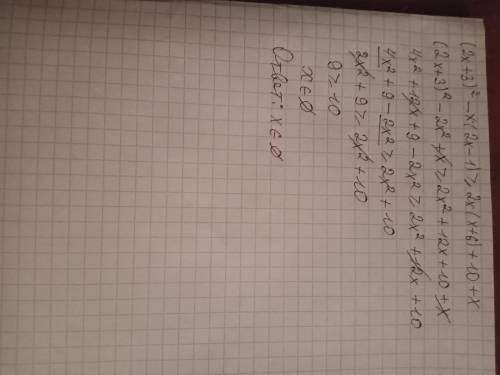 (2x+3)² - x(2x-1) ≥ 2x(x+6) + 10 + x
(2x+3)² - 2x² + x ≥ 2x² + 12x + 10 + x
4x² + 12x + 9 - 2x² ≥ 2x² + 12x + 10
4x² + 9 - 2x² ≥ 2x² + 10
2x² + 9 ≥ 2x² + 10
9 ≥ 10
x ∈ ∅
Ответ: x ∈ ∅